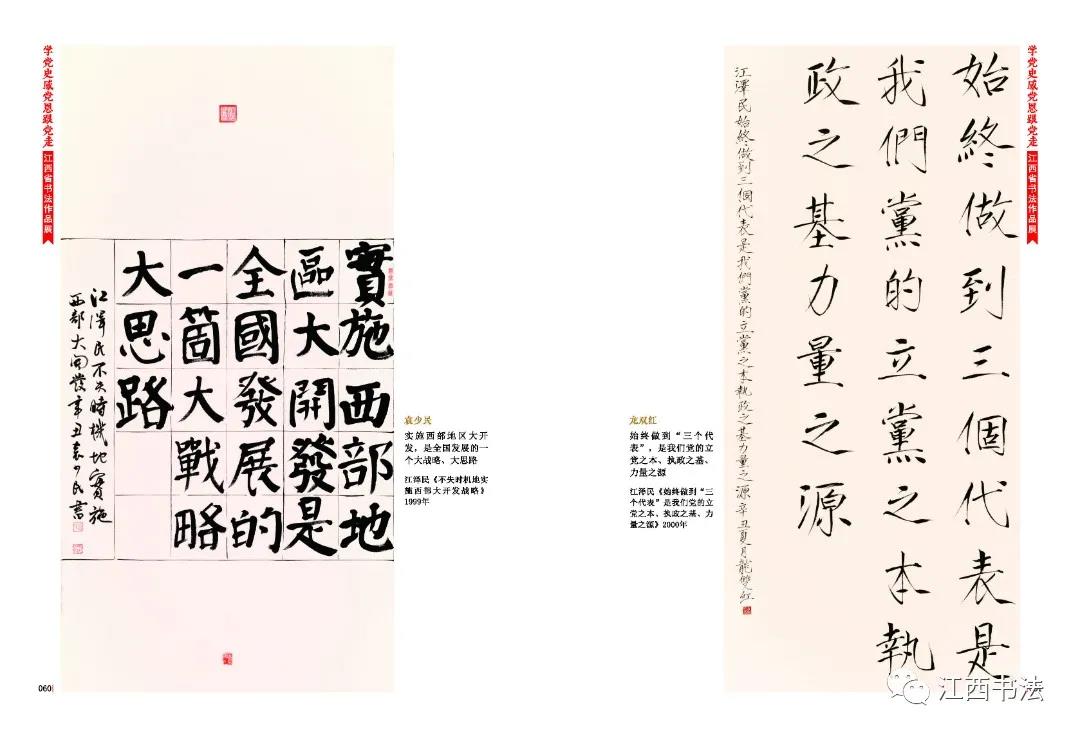 学党史感党恩跟党走
江西省书法作品展
實施西部地
區大開發是
全國發展的
一箇大戰略
大思路
江澤民不失時機地實施
西部大開發辛丑袁少民書
袁少民
实施西部地区大开
发，是全国发展的一
个大战略、大思路
江泽民《不失时机地实
施西部大开发战略》
1999年
060
龙双红
始终做到“三个代
表”，是我们党的立
党之本、执政之基、
力量之源
江泽民《始终做到“三
个代表”是我们党的立
党之本、执政之基、力
量之源》2000年
始終做到三個代表是
我們黨的立黨之本執
政之基力量之源
江澤民始終做到三個代表是我們黨的立黨之本執政之基力量之源辛丑夏月龍雙紅
学党史感党恩跟党走
江西省书法作品展
江西书法